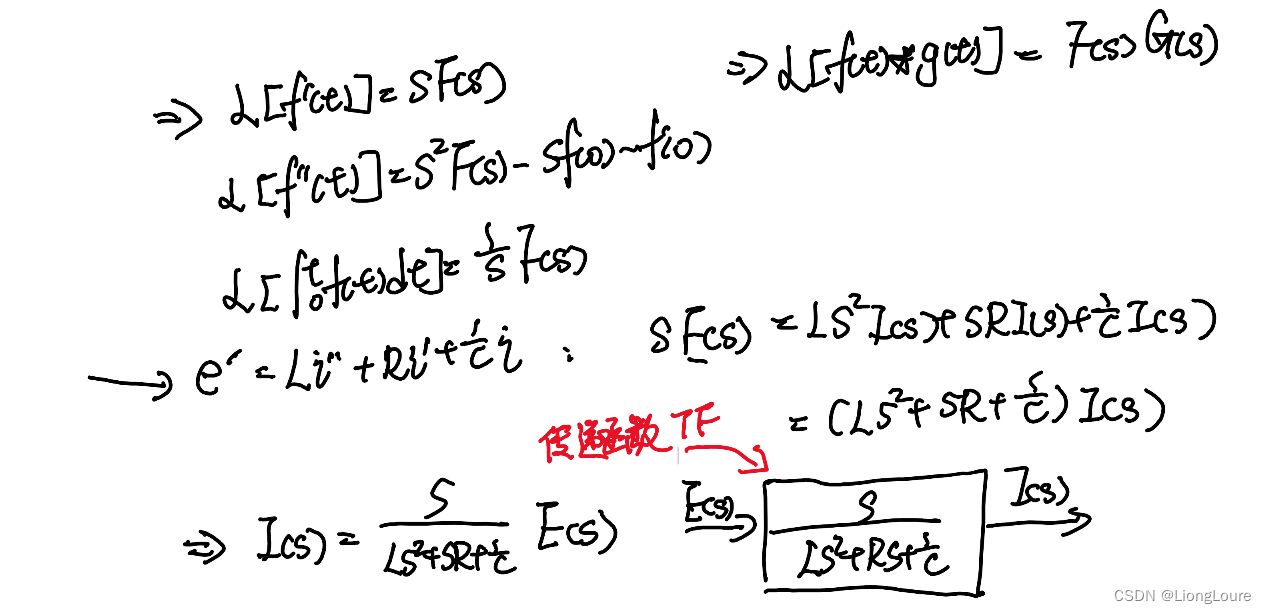 ⇒ L[f'(t)] = SF(s)
⇒ L[f(t)*g(t)] = F(s) G(s)
L[f''(t)] = S²F(s) - Sf(0) - f'(0)
L[∫₀ᵗf(t)dt] = 1/S F(s)
→ e' = Li'' + Ri' + 1/C i :
S E(s) = LS²I(s) + SRI(s) + 1/C I(s)
= (LS² + SR + 1/C) I(s)
传递函数 TF
⇒ I(s) = S/(LS²+SR+1/C) E(s)
E(s) → S/(LS²+RS+1/C) I(s) →
CSDN @LiongLoure